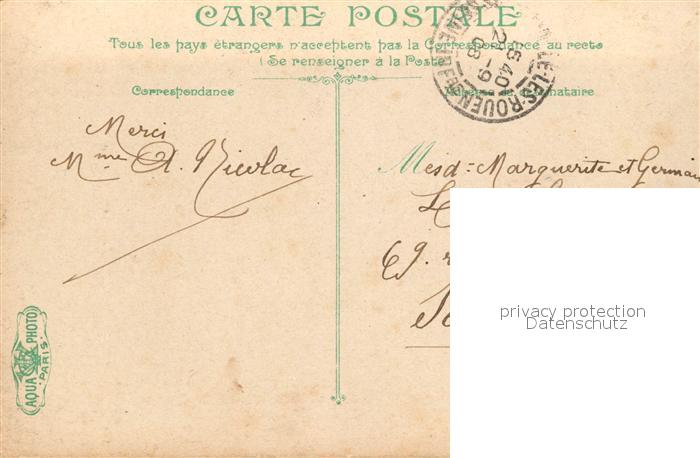 CARTE POSTALE
Tous les pays étrangers n'acceptent pas la Correspondance au recto
(Se renseigner à la Poste
Correspondance
Merci
Mme A. Nicolas
LES-ROUEN
5 40
2 -9
08
Mesd: Marguerite et Germain
69.
AQUA PHOTO
PARIS
privacy protection
Datenschutz